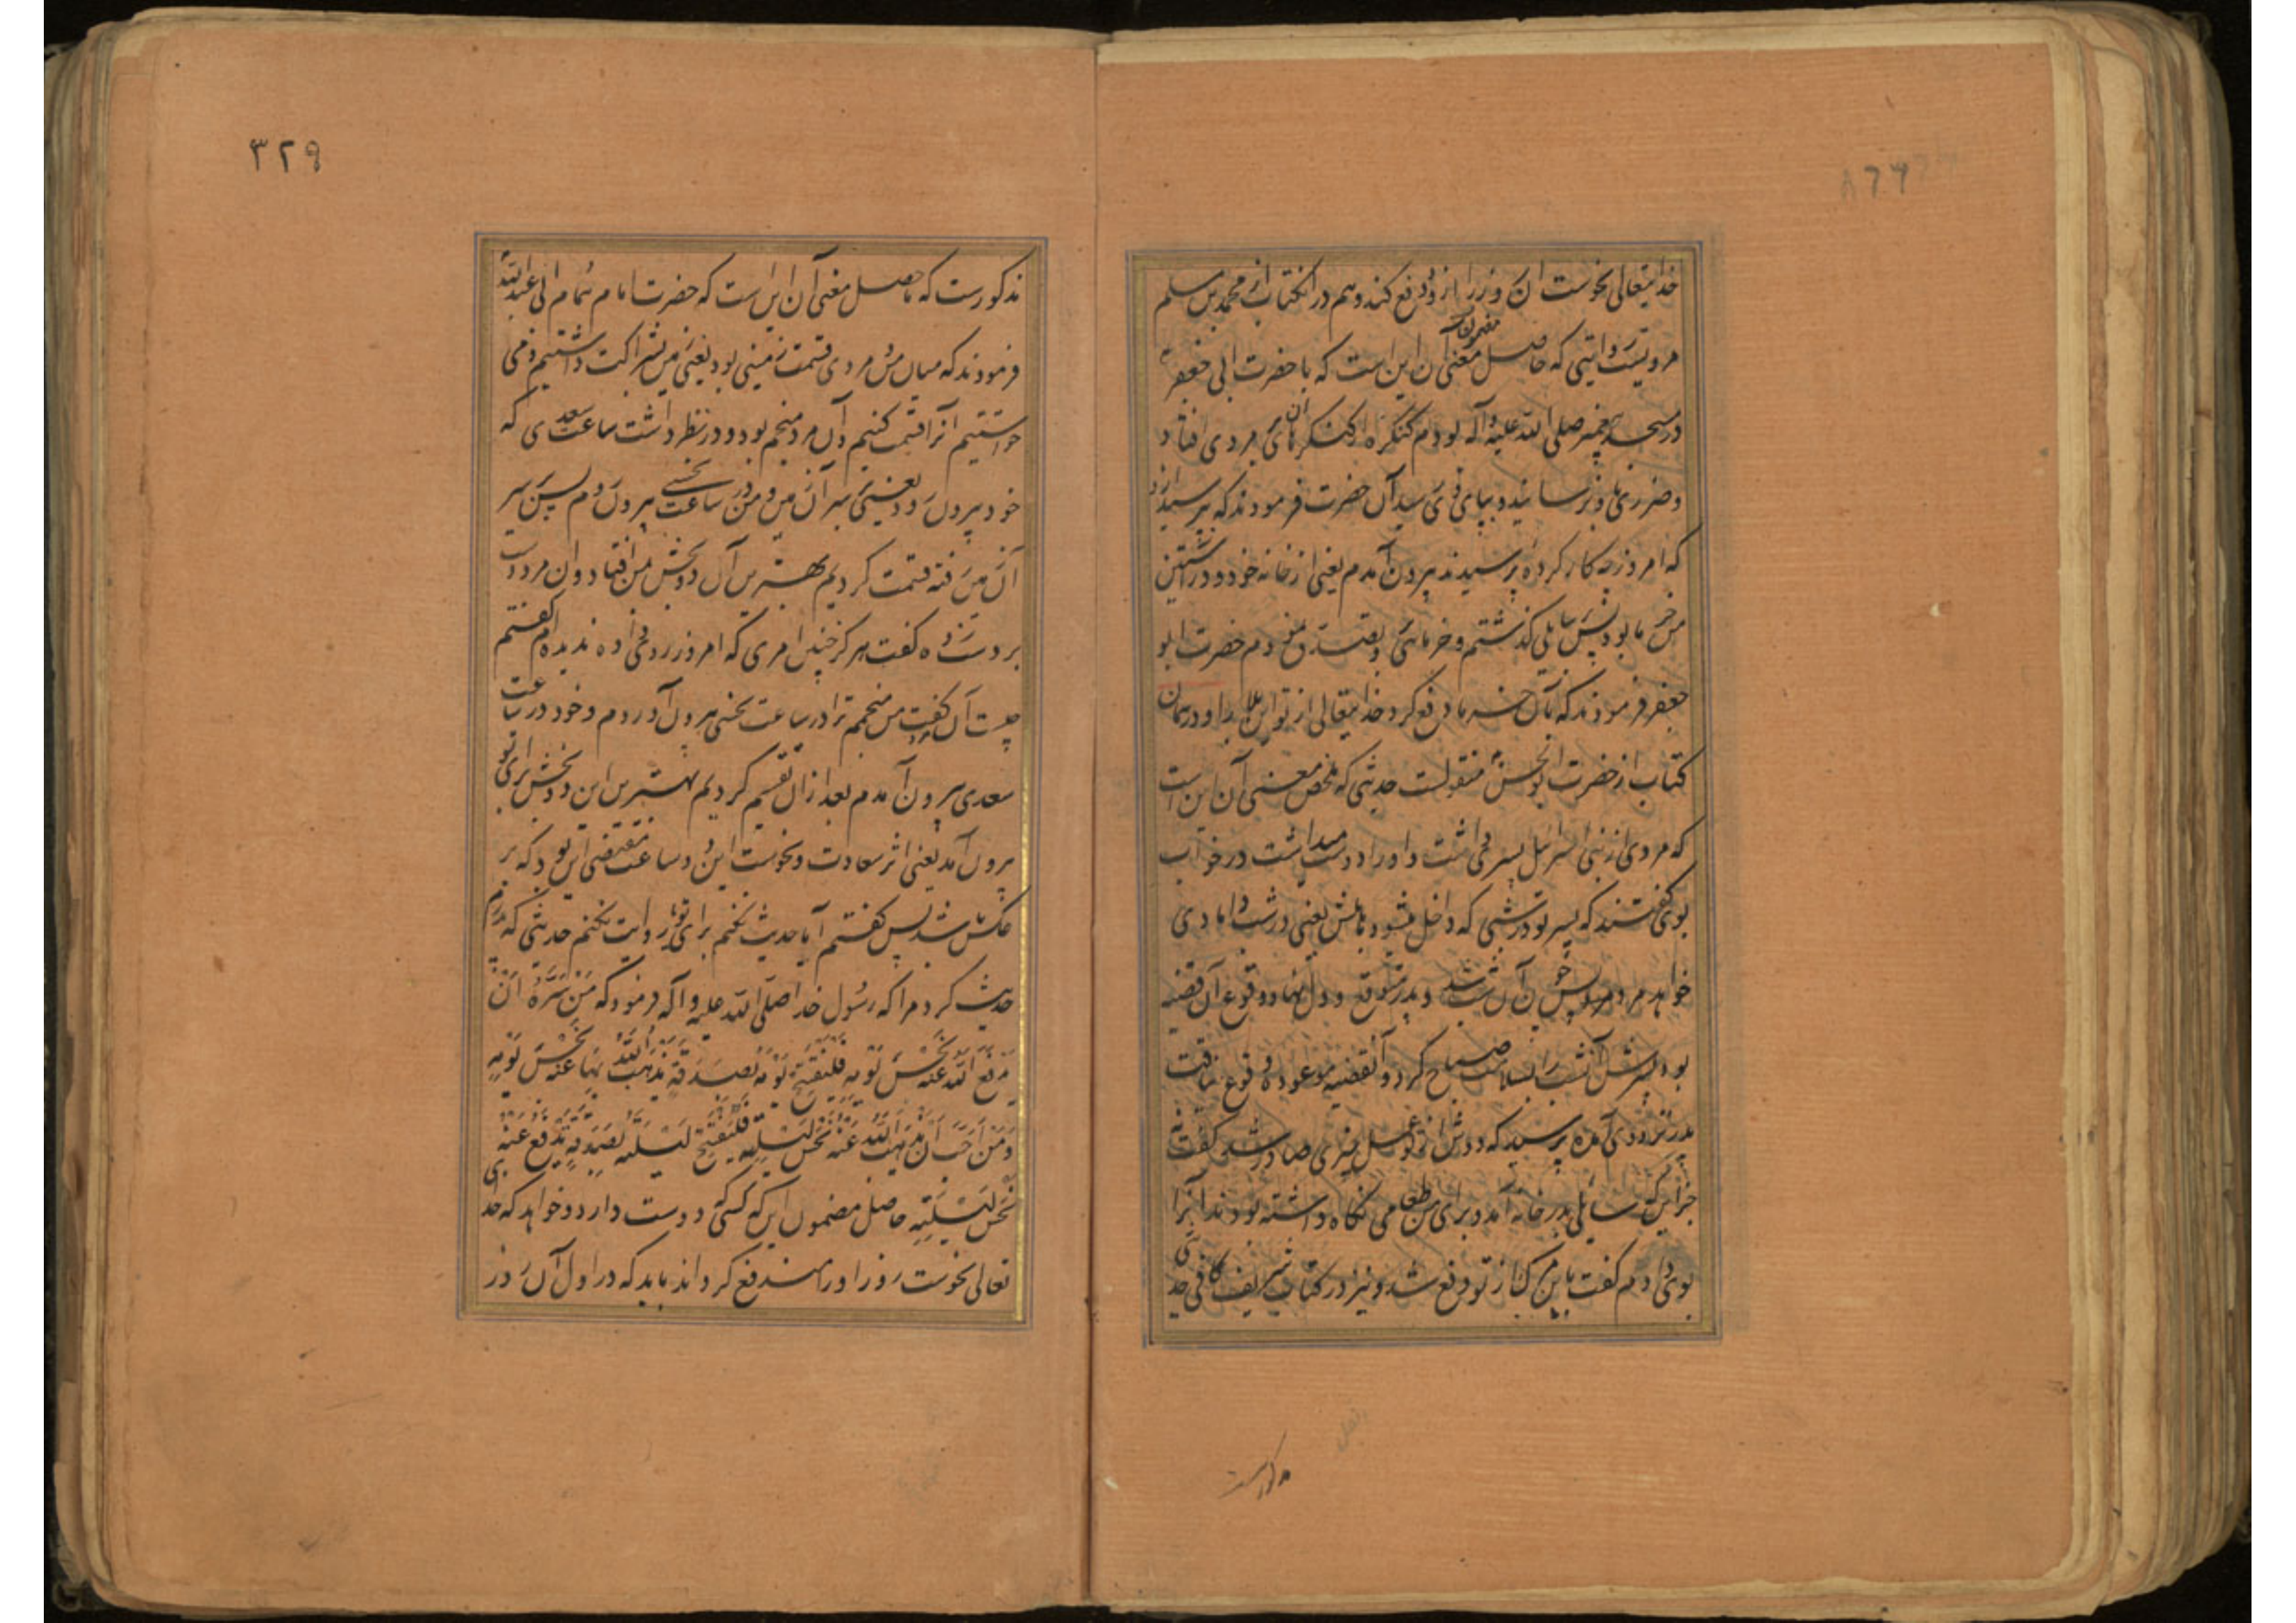 خدایتعالی نحوست آن روز را از و دفع کند و هم در آن کتاب از محمد بن مسلم
مرویست روایتی که حاصل مضمون معنی آن این است که با حضرت ابی جعفر
در مسجد پیغمبر صلی الله علیه و آله بودم کنگره از کنگرهای آن بر مردی افتاد
و ضرری باو نرسانید و بپای وی رسید آن حضرت فرمودند که بپرسید ازو
که امروز چه کار کرده پرسیدند بیرون آمدم یعنی از خانه خود و در آستین
من خرما بود پس بسایلی گذشتم و خرمائی تصدق نمودم حضرت ابو
جعفر فرمودند که بآن خرما دفع کرد خدایتعالی از تو این بلا را و در همان
کتاب از حضرت ابوالحسن منقولست حدیثی که ملخص معنی آن این است
که مردی از بنی اسرائیل پسری داشت و او را دوست میداشت در خواب
بوی گفتند که پسر تو در شبی که داخل میشود باهلش یعنی در شب دامادی
خواهد مرد پس چون آن شب شد و پدر متوقع و دل نهاد وقوع آن قضیه
بود پسرش آنشب را بسلامت صباح کرد و آنقضیه موعوده وقوع نیافت
پدر نزد وی آمده پرسید که دوش از تو عمل خیری صادر شد گفت نه
جز این که سائلی بدر خانه آمد و برای من طعامی نگاه داشته بودند آنرا
بوی دادم گفت باین مرگ از تو دفع شد و نیز در کتاب شریف کافی حدیثی
مذکورست
۳۲۹
مذکورست که حاصل معنی آن این است که حضرت امام همام ابی عبدالله
فرمودند که میان من و مردی قسمت زمینی بود یعنی زمین بشراکت داشتیم و می
خواستیم آنرا قسمت کنیم و آن مرد منجم بود و در نظر داشت ساعت سعدی که
خود بیرون رود یعنی بسر آن زمین و من در ساعت نحسی بیرون روم پس بسر
آن زمین رفته قسمت کردیم بهترین آن دو بخش بمن افتاد و آن مرد دست
بر دست زده گفت هرگز چنین امری که امروز روی داده ندیده‌ام گفتم
چیست آن گفت من منجمم ترا در ساعت نحسی بیرون آوردم و خود در ساعت
سعدی بیرون آمدم بعد از آن تقسیم کردیم بهترین این دو بخش برای تو
بیرون آمد یعنی اثر سعادت و نحوست این دو ساعت مقتضی این بود که بر
عکس باشد پس گفتم آیا حدیث نکنم برای تو و روایت نکنم حدیثی که پدرم
حدیث کرد مرا که رسول خدا صلی الله علیه و آله فرمود که مَنْ سَرَّهُ اَنْ
يَدْفَعَ اللّٰهُ عَنْهُ نَحْسَ يَوْمِهِ فَلْيَفْتَتِحْ يَوْمَهُ بِصَدَقَةٍ يُذْهِبُ اللّٰهُ بِهَا عَنْهُ نَحْسَ يَوْمِهِ
وَمَنْ اَحَبَّ اَنْ يُذْهِبَ اللّٰهُ عَنْهُ نَحْسَ لَيْلَتِهِ فَلْيَفْتَتِحْ لَيْلَتَهُ بِصَدَقَةٍ يَدْفَعُ عَنْهُ
نَحْسَ لَيْلَتِهِ حاصل مضمون این که کسی که دوست دارد و خواهد که خدای
تعالی نحوست روز را از و دفع گرداند باید که در اول آن روز